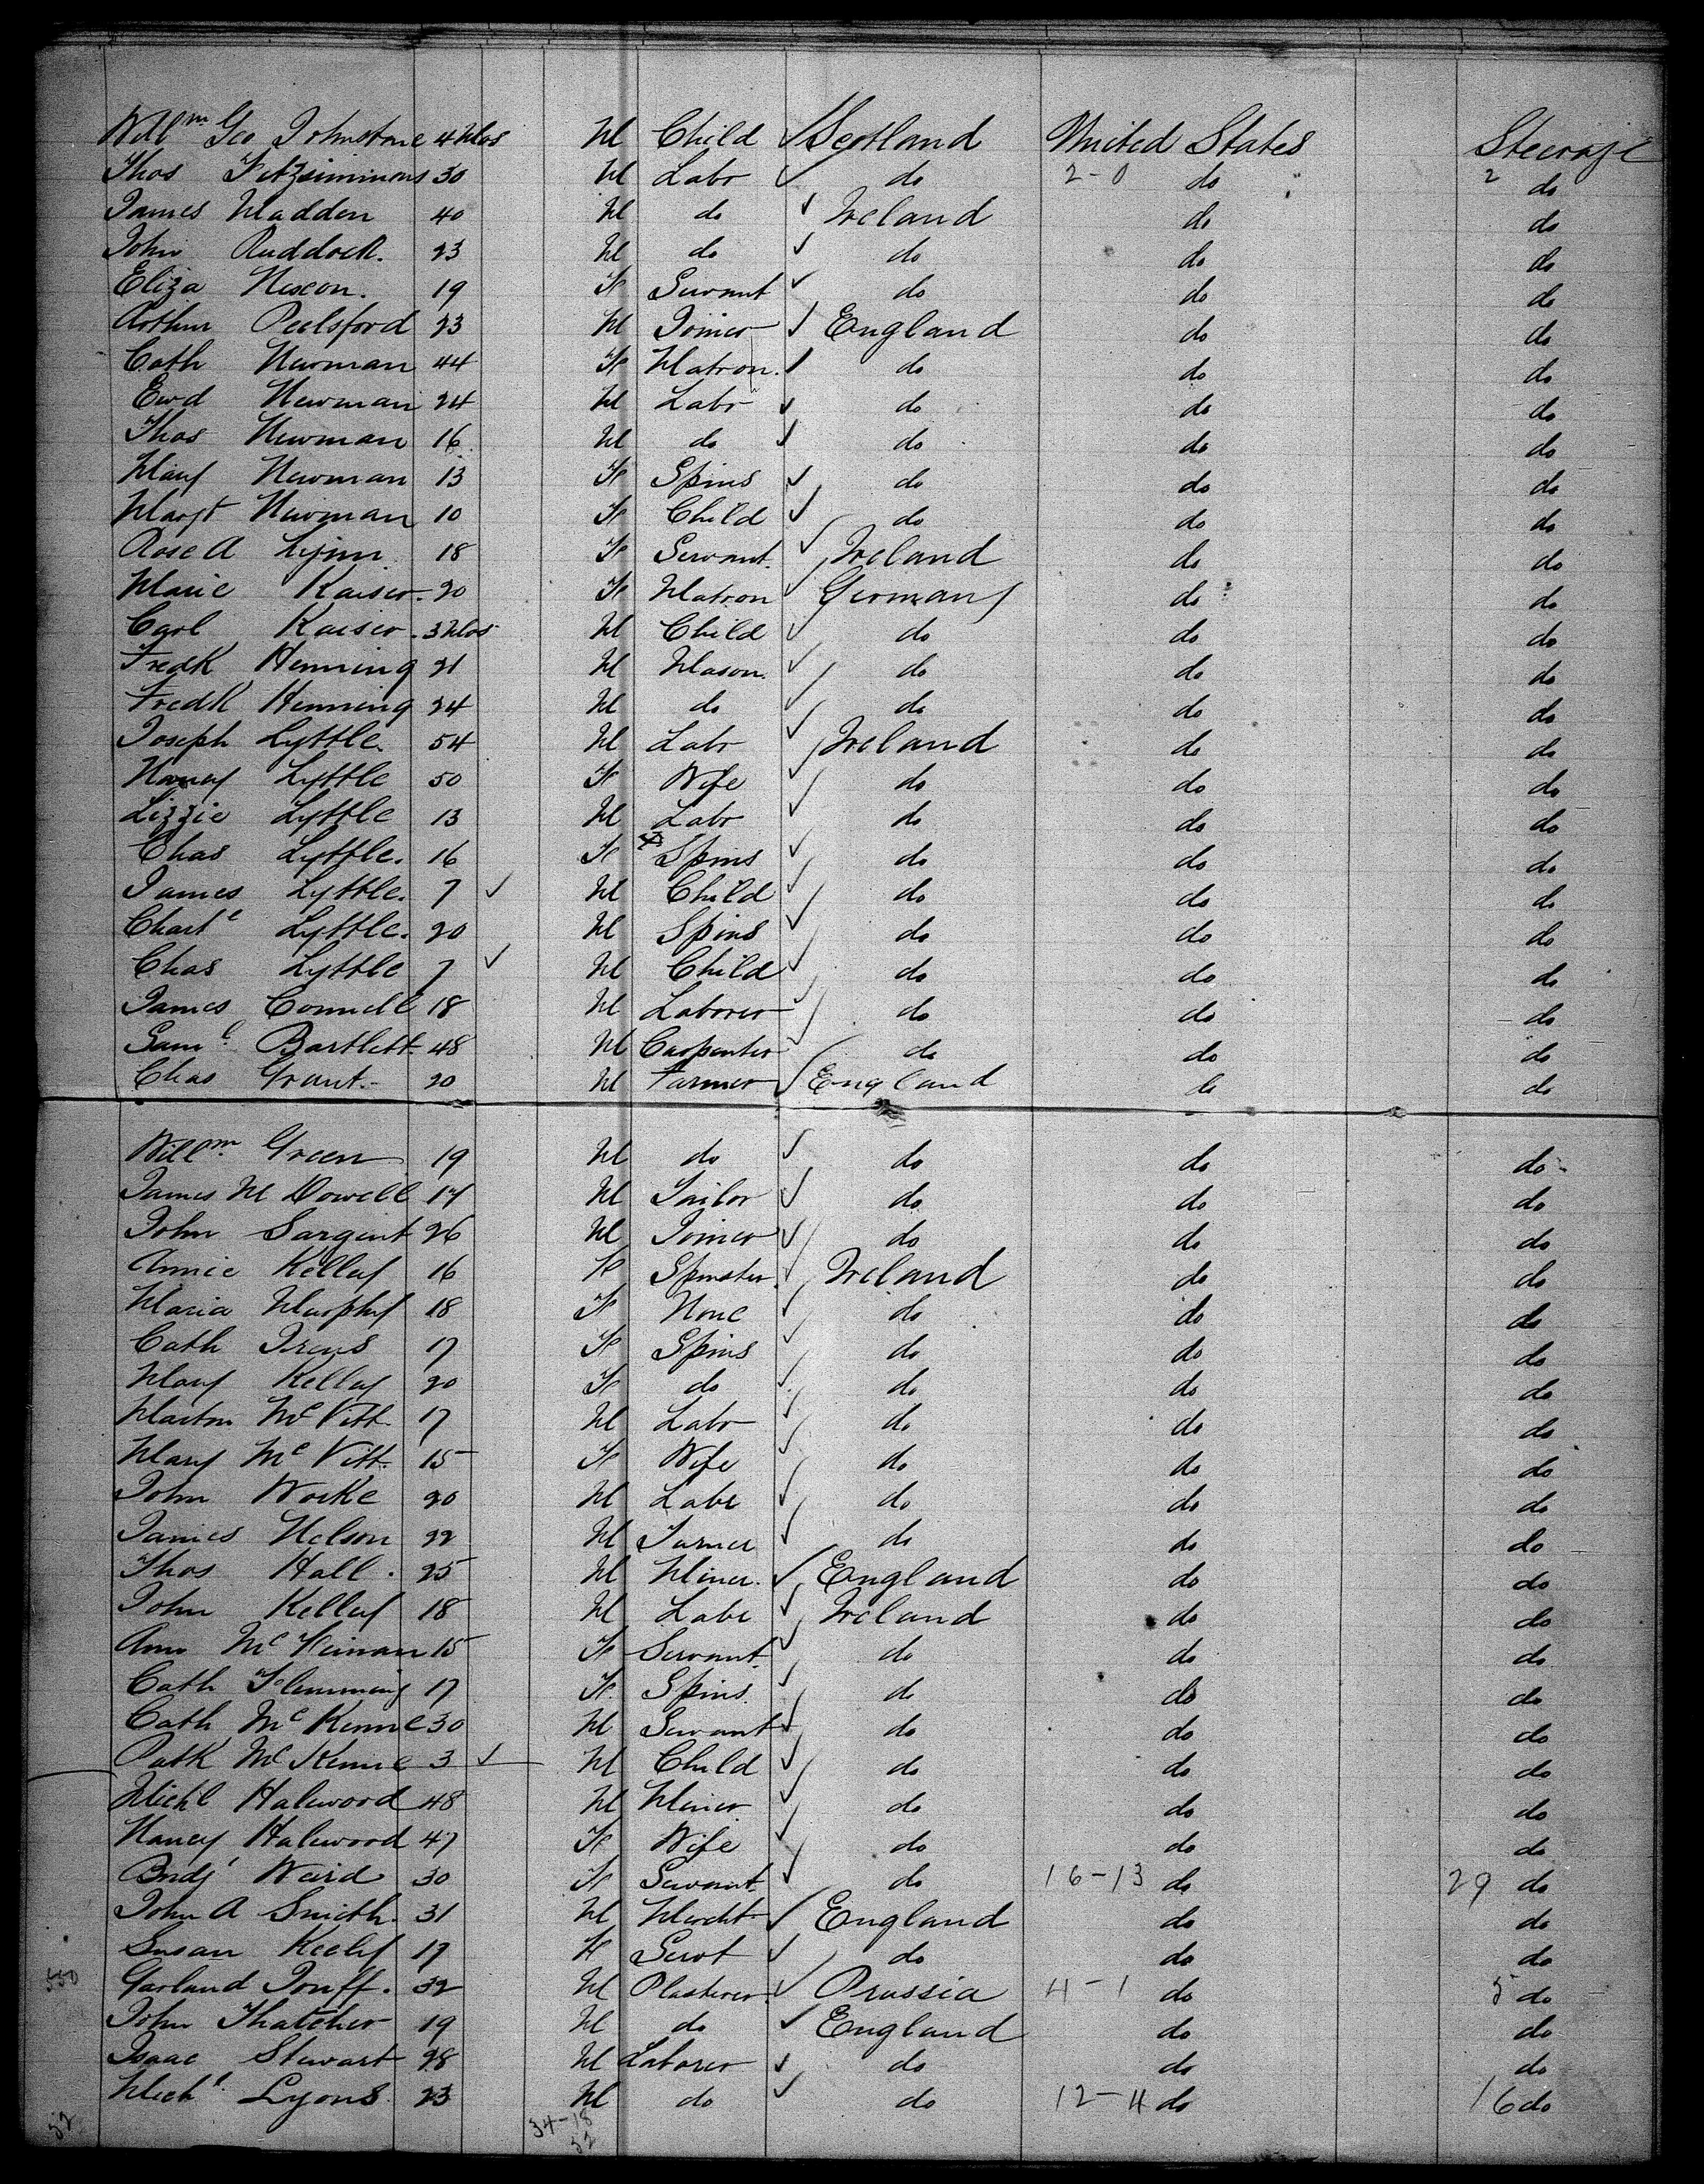 Will^m Geo Johnstone 4 Mos M Child ✓ Scotland United States Steerage
Thos Fitzsimmons 30 M Labr ✓ do 2-0 do 2 do
James Madden 40 M do ✓ Ireland do do
John Ruddock. 23 M do ✓ do do do
Eliza Nixon. 19 F Servant ✓ do do do
Arthur Pelsford 23 M Joiner ✓ England do do
Cath Newman 44 F Matron. ✓ do do do
Ewd Newman 24 M Labr ✓ do do do
Thos Newman 16 M do ✓ do do do
Mary Newman 13 F Spins ✓ do do do
Margt Newman 10 F Child ✓ do do do
Rose A Lynn 18 F Servant. ✓ Ireland do do
Marie Kaiser. 20 F Matron ✓ Germany do do
Carl Kaiser. 3 Mos M Child ✓ do do do
Fredk Henning 21 M Mason. ✓ do do do
Fredk Henning 24 M do ✓ do do do
Joseph Lyttle. 54 M Labr ✓ Ireland do do
Nancy Lyttle 50 F Wife ✓ do do do
Lizzie Lyttle 13 M Labr ✓ do do do
Chas Lyttle. 16 F Spins ✓ do do do
James Lyttle. 7 ✓ M Child ✓ do do do
Charl^e Lyttle. 20 M Spins ✓ do do do
Chas Lyttle 7 ✓ M Child ✓ do do do
James Connell 18 M Laborer ✓ do do do
Sam^l Bartlett. 48 M Carpenter ✓ do do do
Chas Grant.- 20 M Farmer ✓ England do do
Will^m. Green 19 M do ✓ do do do
James M Dowell 17 M Tailor ✓ do do do
John Sargent 26 M Joiner ✓ do do do
Annie Kelly 16 F Spinster. ✓ Ireland do do
Maria Murphy 18 F None ✓ do do do
Cath 17 F Spins ✓ do do do
Mary Kelly 20 F do ✓ do do do
Martin Mc Vitt. 17 M Labr ✓ do do do
Mary Mc Vitt. 15 F Wife ✓ do do do
John Worke 20 M Labr ✓ do do do
James Nelson 22 M ✓ do do do
Thos Hall. 25 M Miner. ✓ England do do
John Kelly 18 M Labr ✓ Ireland do do
Ann Mc 15 F Servant. ✓ do do do
Cath Flemming 17 F. Spins. ✓ do do do
Cath Mc Kenne 30 M Servant ✓ do do do
Patk Mc Kenne 3 ✓ M Child ✓ do do do
Michl Halewood 48 M Miner ✓ do do do
Nancy Halewood 47 F Wife ✓ do do do
Bridj^t Ward 30 F Servant. ✓ do 16-13 do 29 do
John A Smith. 31 M Mercht ✓ England do do
Susan Keely 17 F Servt ✓ do do do
550 Garland 32 M Plasterer. ✓ Prussia 4-1 do 5 do
John Thatcher 19 M do ✓ England do do
Isaac Stewart 28 M Laborer ✓ do do do
Mich^l. Lyons 23 M do ✓ do 12-4 do 16 do
52 34-18
52